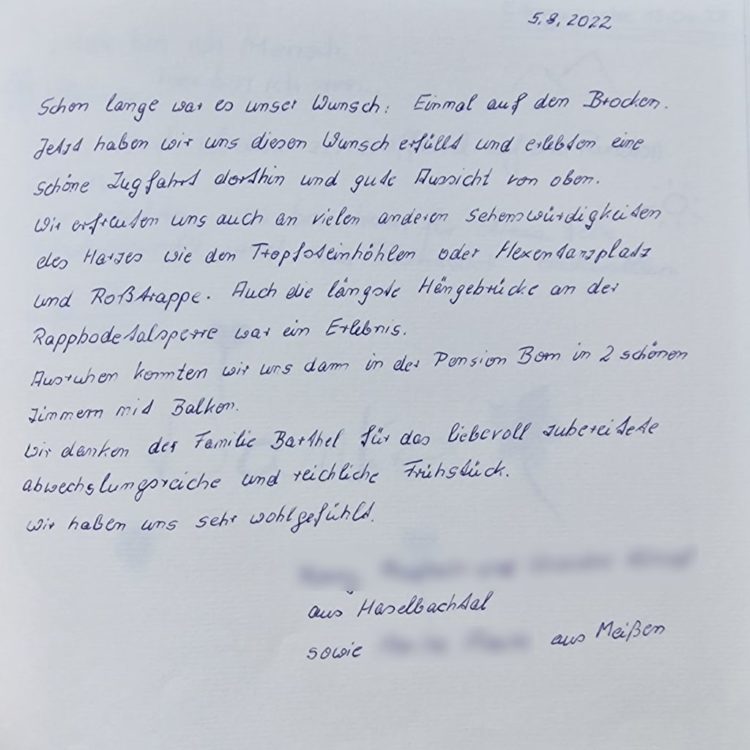 5.8.2022
Schon lange war es unser Wunsch: Einmal auf den Brocken.
Jetzt haben wir uns diesen Wunsch erfüllt und erlebten eine
schöne Zugfahrt dorthin und gute Aussicht von oben.
Wir erfreuten uns auch an vielen anderen Sehenswürdigkeiten
des Harzes wie den Tropfsteinhöhlen oder Hexentanzplatz
und Roßtrappe. Auch die längste Hängebrücke an der
Rappbodetalsperre war ein Erlebnis.
Ausruhen konnten wir uns dann in der Pension Born in 2 schönen
Zimmern mit Balkon.
Wir danken der Familie Barthel für das liebevoll zubereitete
abwechslungsreiche und reichliche Frühstück.
Wir haben uns sehr wohlgefühlt.
aus Haselbachtal
sowie aus Meißen